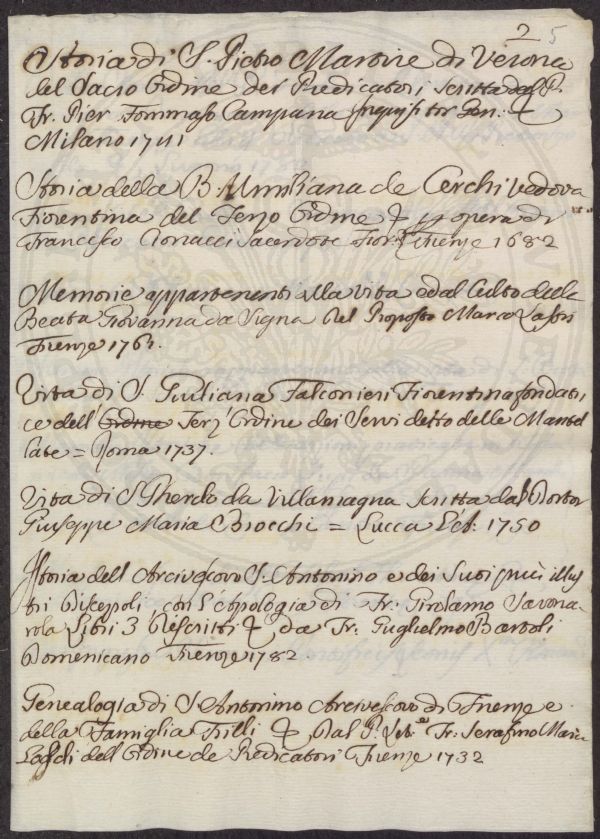 2 5
Storia di S. Pietro Martire di Verona
del Sacro Ordine dei Predicatori scritta dal P.
Fr. Pier Tommaso Campana Inquisitor Gen: &
Milano 1741
Storia della B. Umiliana de Cerchi vedova
Fiorentina del Terzo Ordine & opera di
Francesco Cionacci Sacerdote Fior: Firenze 1682
Memorie appartenenti alla vita ed al Culto della
Beata Giovanna da Signa del Proposto Marco Lastri
Firenze 1761.
Vita di S. Giuliana Falconieri Fiorentina fondatri
ce dell' Ordine Terz' Ordine dei Servi detto delle Mantel
late = Roma 1737.
Vita di S Gherdo da Villamagna scritta dal Dottor
Giuseppe Maria Brocchi = Lucca 1750
Istoria dell Arcivescovo S. Antonino e dei Suoi più illus
tri Discepoli, con l'Apologia di Fr: Girolamo Savona-
rola Libri 3 descritti & da Fr: Guglielmo Bartoli
Domenicano Firenze 1782.
Genealogia di S Antonino Arcivescovo di Firenze e
della Famiglia & Dal P. Fr: Serafino Maria
dell Ordine de Predicatori Firenze 1732